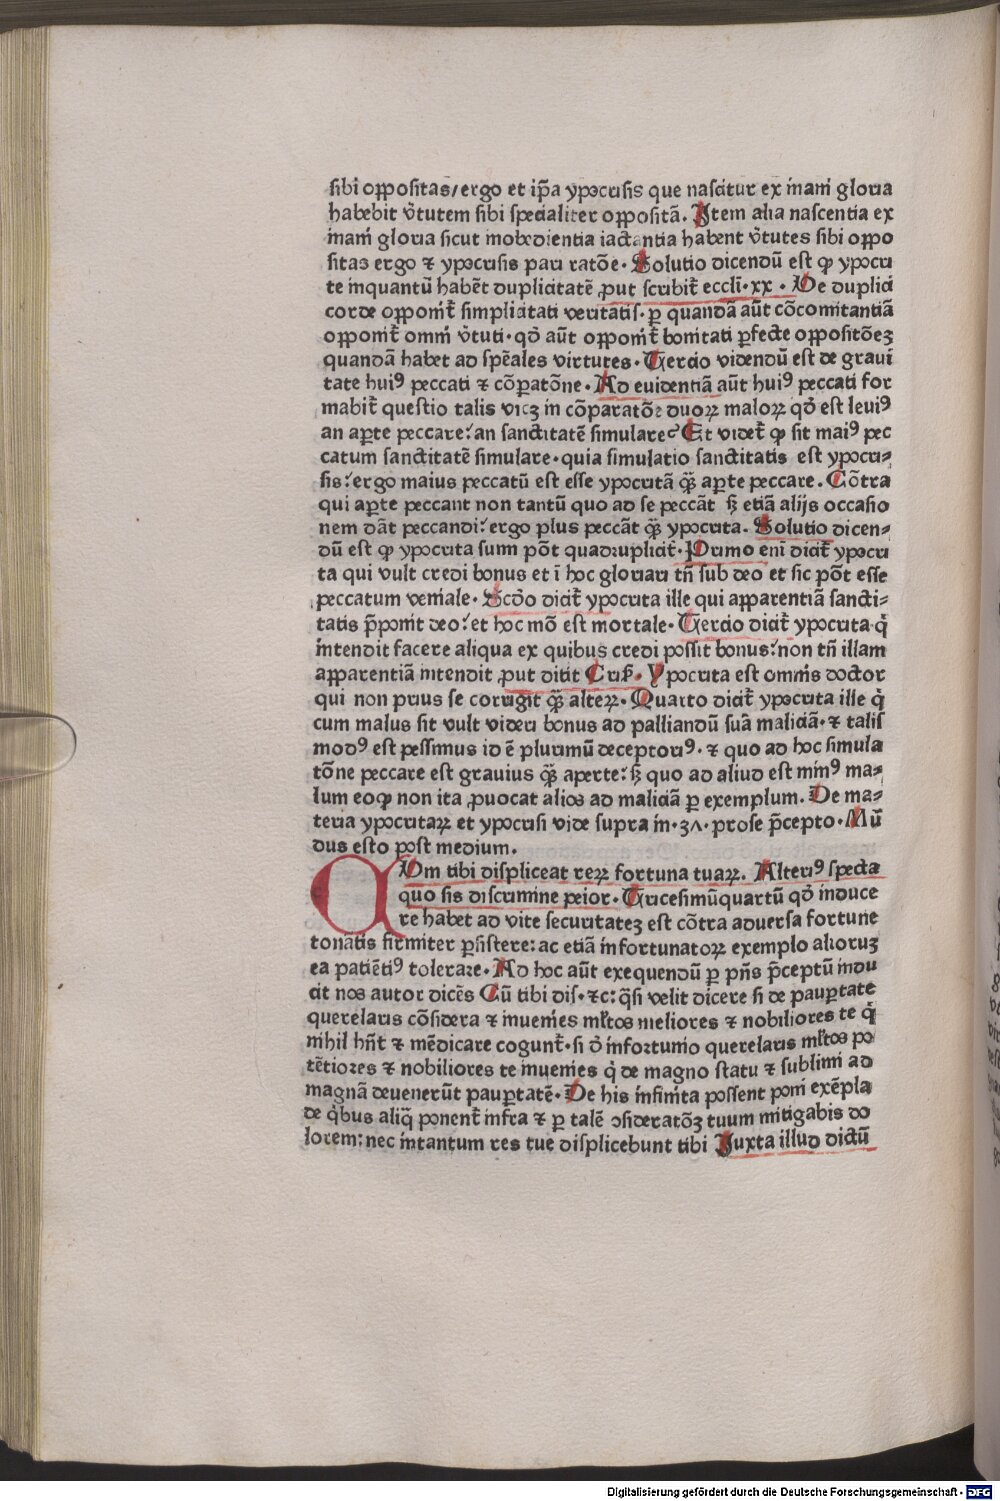 sibi oppositas/ergo et ip̃a ypocrisis que nascitur ex inani gloria
habebit ṽtutem sibi specialiter oppositã. Item alia nascentia ex
inani gloria sicut inobedientia iactantia habent ṽtutes sibi oppo
sitas ergo ⁊ ypocrisis pari ratõe. Solutio dicendũ est ꝙ ypocri
te inquantũ habẽt duplicitatẽ ꝓut scribit̃ eccli.xx. De duplici
corde opponit̃ simplicitati veritatis. ꝑ quandã aũt cõcomitantiã
opponit̃ omni ṽtuti. qđ aũt opponit̃ bonitati ꝑfecte oppositõeʒ
quandã habet ad spẽales virtutes. Tercio videndũ est de graui
tate huiꝰ peccati ⁊ cõꝑatõne. Ad euidentiã aũt huiꝰ peccati for
mabit̃ questio talis vicʒ in cõparatõe duoꝝ maloꝝ qđ est leuiꝰ
an aꝑte peccare: an sanctitatẽ simulare? Et videt̃ ꝙ sit maiꝰ pec
catum sanctitatẽ simulare. quia simulatio sanctitatis est ypocri-
sis: ergo maius peccatũ est esse ypocritã q̃ꝫ aꝑte peccare. Cõtra
qui aꝑte peccant non tantũ quo ad se peccãt sꝫ etiã alijs occasio
nem dãt peccandi: ergo plus peccãt q̃ꝫ ypocrita. Solutio dicen-
dũ est ꝙ ypocrita sumi põt quadruplicit̃. Primo eni dicit̃ ypocri
ta qui vult credi bonus et ĩ hoc gloriari tñ sub deo et sic põt esse
peccatum veniale. Scďo dicit̃ ypocrita ille qui apparentiã sancti-
tatis p̃ponit deo: et hoc mõ est mortale. Tercio dicit̃ ypocrita q̇
intendit facere aliqua ex quibus credi possit bonus: non tñ illam
apparentiã intendit ꝓut dicit Cris̃. Ypocrita est omnis doctor
qui non prius se corrigit q̃ꝫ alteꝝ. Quarto dicit̃ ypocrita ille q̇
cum malus sit vult videri bonus ad palliandũ suã maliciã. ⁊ talis
modꝰ est pessimus id ẽ plurimũ deceptoriꝰ. ⁊ quo ad hoc simula
tõne peccare est grauius q̃ꝫ aperte: sꝫ quo ad aliud est minꝰ ma-
lum eoꝙ non ita ꝓuocat alios ad maliciã ꝑ exemplum. De ma-
teria ypocritaꝝ et ypocrisi vide supra in.31. prose p̃cepto. Mũ
dus esto post medium.
CVm tibi displiceat reꝝ fortuna tuaꝝ. Alteriꝰ specta
quo sis discrimine peior. Tricesimũquartũ qđ induce
re habet ad vite securitateʒ est cõtra aduersa fortune
tonãtis firmiter ꝑsistere: ac etiã infortunatoꝝ exemplo alioruʒ
ea patiẽtiꝰ tolerare. Ad hoc aũt exequendũ ꝑ pñs p̃ceptũ indu
cit nos autor dicẽs Cũ tibi dis. ⁊c: q̃si velit dicere si de pauꝑtate
querelaris cõsidera ⁊ inuenies ml̃tos meliores ⁊ nobiliores te q̇
nihil hñt ⁊ mẽdicare cogunt̃. si ṽo infortunio querelaris ml̃tos po
tẽtiores ⁊ nobiliores te inuenies q̇ de magno statu ⁊ sublimi ad
magnã deuenerũt pauꝑtatẽ. De his infinita possent poni exẽpla
de q̇bus aliq̃ ponent̃ infra ⁊ ꝑ talẽ ↄsideratõʒ tuum mitigabis do
lorem: nec intantum res tue displicebunt tibi Iuxta illud dictũ
Digitalisierung gefördert durch die Deutsche Forschungsgemeinschaft - DFG